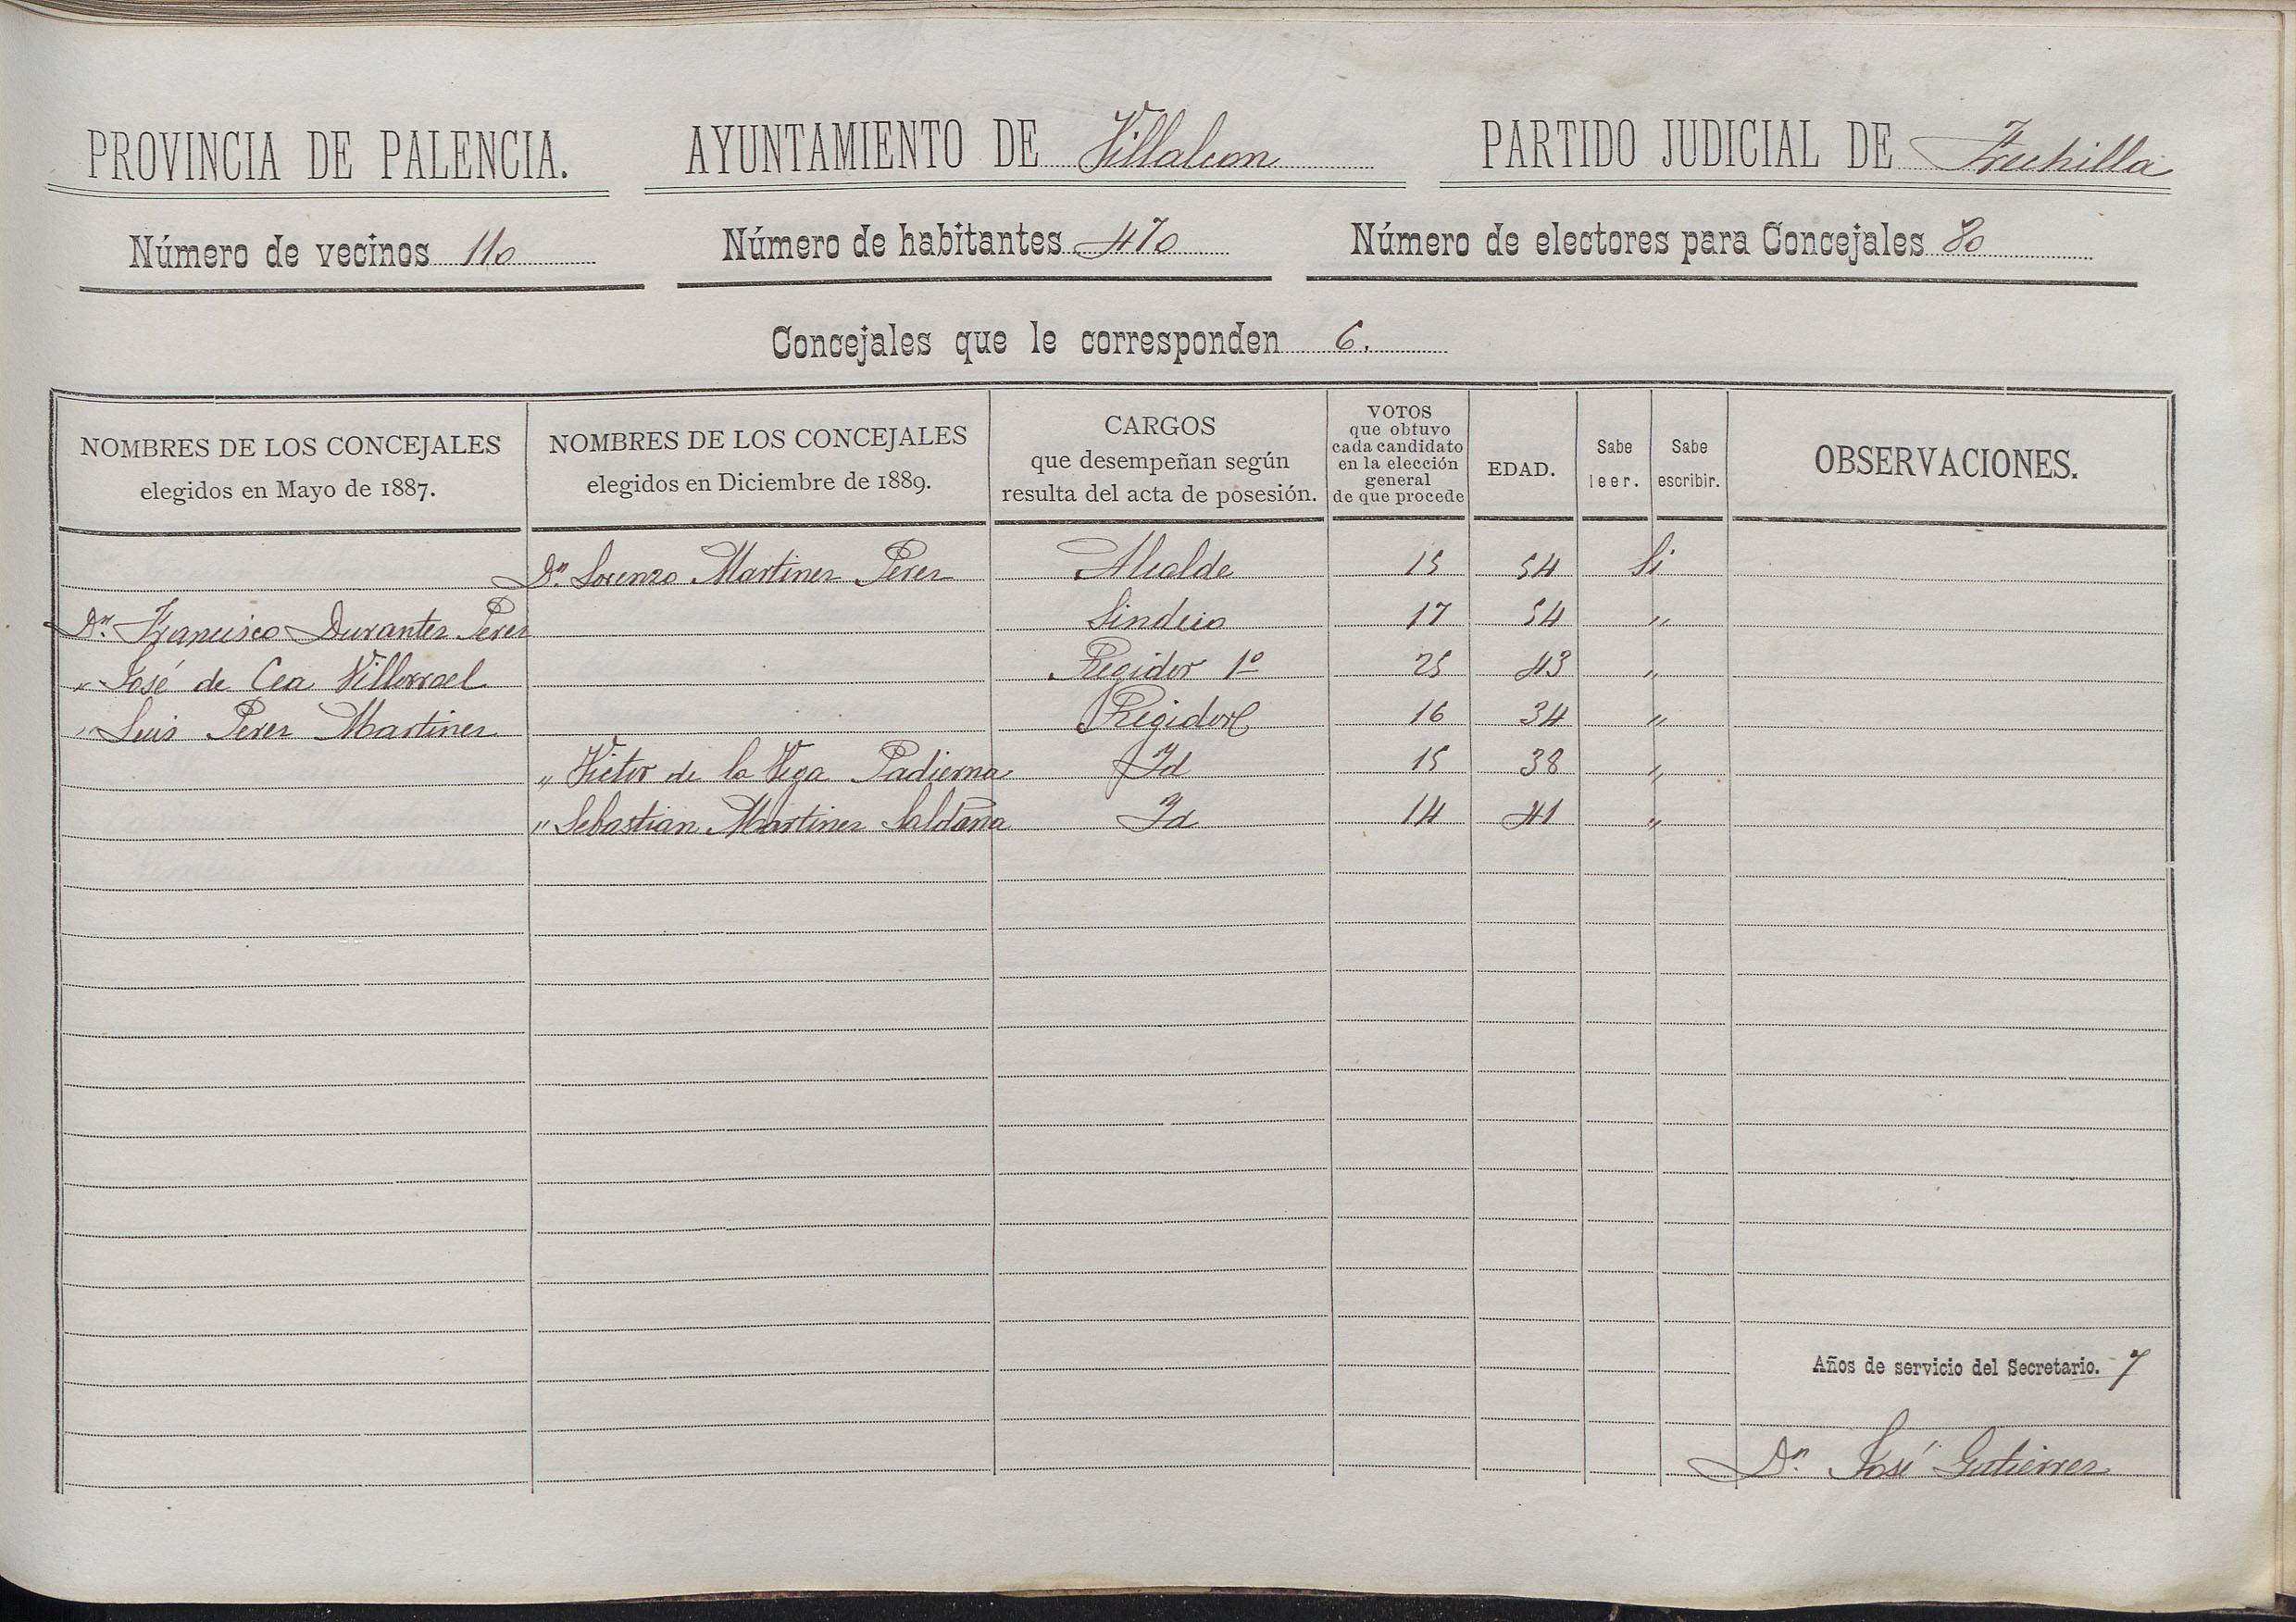 PROVINCIA DE PALENCIA. AYUNTAMIENTO DE Villalcon PARTIDO JUDICIAL DE Frechilla
Número de vecinos 110 Número de habitantes 470 Número de electores para Concejales 80
Concejales que le corresponden 6.
NOMBRES DE LOS CONCEJALES
elegidos en Mayo de 1887.
NOMBRES DE LOS CONCEJALES
elegidos en Diciembre de 1889.
CARGOS
que desempeñan según
resulta del acta de posesión.
VOTOS
que obtuvo
cada candidato
en la elección
general
de que procede
EDAD.
Sabe
leer.
Sabe
escribir.
OBSERVACIONES.
Dn. Lorenzo Martinez Perez Alcalde 15 54 Si
Dn. Francisco Durantez Perez Sindico 17 54 "
" José de Cea Villorroel Regidor 1º 25 43 "
" Luis Perez Martinez Regidor 16 34 "
" Victor de la Vega Padierna Id 15 38 "
" Sebastian Martinez Saldaña Id 14 41 "
Años de servicio del Secretario. 7
Dn. José Gutierrez